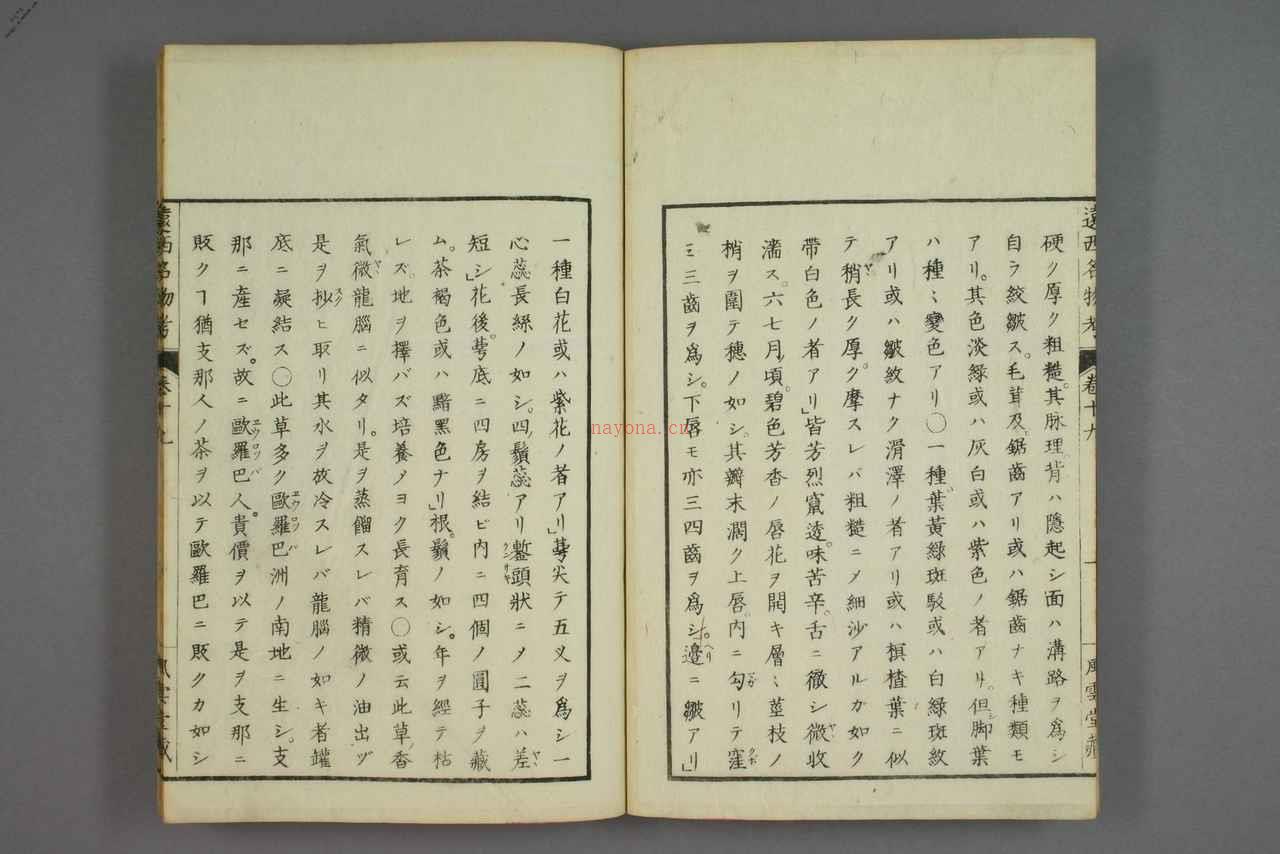 遠西名物考
卷十九
一
風雲堂藏
硬ク厚ク粗糙其脉理背ハ隱起シ面ハ溝路ヲ爲シ
自ラ絞皺ス。毛茸及鋸齒アリ或ハ鋸齒ナキ種類モ
アリ。其色淡緑或ハ灰白或ハ紫色ノ者アリ。但脚葉
ハ種〻變色アリ〇一種葉黃緑斑駁或ハ白緑斑紋
アリ或ハ皺紋ナク滑澤ノ者アリ或ハ榠樝葉ニ似
テ稍長ク厚ク摩スレバ粗糙ニ〆細沙アルガ如ク
帶白色ノ者アリ」皆芳烈竄透。味苦辛。舌ニ徹シ微收
濇ス。六七月頃碧色芳香ノ唇花ヲ開キ層〻莖枝ノ
梢ヲ圍テ穗ノ如シ。其瓣末濶ク上唇內ニ勾リテ窪
ミ三齒ヲ爲シ。下唇モ亦三四齒ヲ爲シ。邊ニ皺アリ」
一種白花或ハ紫花ノ者アリ」萼尖テ五义ヲ爲シ一
心蕊長絲ノ如シ。四鬚蕊アリ鏨頭狀ニ〆二蕊ハ差
短シ」花後。萼底ニ四房ヲ結ビ內ニ四個ノ圓子ヲ藏
ム。茶褐色或ハ黯黑色ナリ」根。鬚ノ如シ。年ヲ經テ枯
レズ。地ヲ擇バズ培養〆ヨク長育ス〇或云此草ノ香
氣微龍腦ニ似タリ。是ヲ蒸餾スレバ精微ノ油出ヅ
是ヲ抄ヒ取リ其水ヲ放冷スレバ龍腦ノ如キ者罐
底ニ凝結ス〇此草多ク歐羅巴洲ノ南地ニ生シ。支
那ニ產セズ。故ニ歐羅巴人。貴價ヲ以テ是ヲ支那ニ
販クヿ猶支那人ノ茶ヲ以テ歐羅巴ニ販クカ如シ
遠西名物考
卷十九
風雲堂藏
nayona.cn